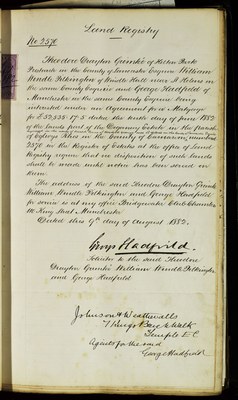 Land Registry
No. 2570
Theodore Drayton Grimké of Halton Park
in the County of Lancaster Esquire William
Windle Pilkington of Windle Hall near St Helens in
the same County Esquire and George Hadfield of
Manchester in the same County Esquire being
interested under an Agreement for a Mortgage
for £ dated the tenth day of June 1882
of the lands part of the Estate in the
County of Lancaster
2570 in the Register of Estates at the office of Land
Registry require that no disposition of such lands
shall be made until notice has been served on
them
The address of the said Theodore Drayton Grimké
William Windle Pilkington and George Hadfield
for service is at my office Bridgewater Club Chambers
King Street Manchester
Dated this 9th day of August 1882.
George Hadfield.
Solicitor to the said Theodore
Drayton Grimké William Windle Pilkington
and George Hadfield
Johnson & Weatheralls
7 King's Bench Walk
Temple E.C.
Agents for the said
George Hadfield